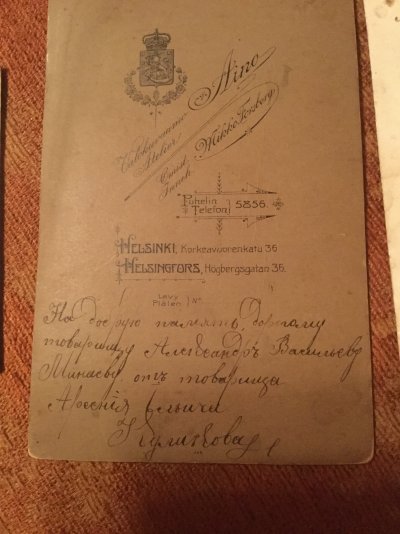 Aino
Valokuvaamo
Atelier
Mikko Forsberg
Puhelin
Telefon
5856.
HELSINKI, Korkeavuorenkatu 36
HELSINGFORS, Högbergsgatan 36.
Levy
Plåten
N:o
На добрую память, дорогому
товарищу Александръ Васильевъ
Минаеву, отъ товарища
Арсенія Ильича
Куликова